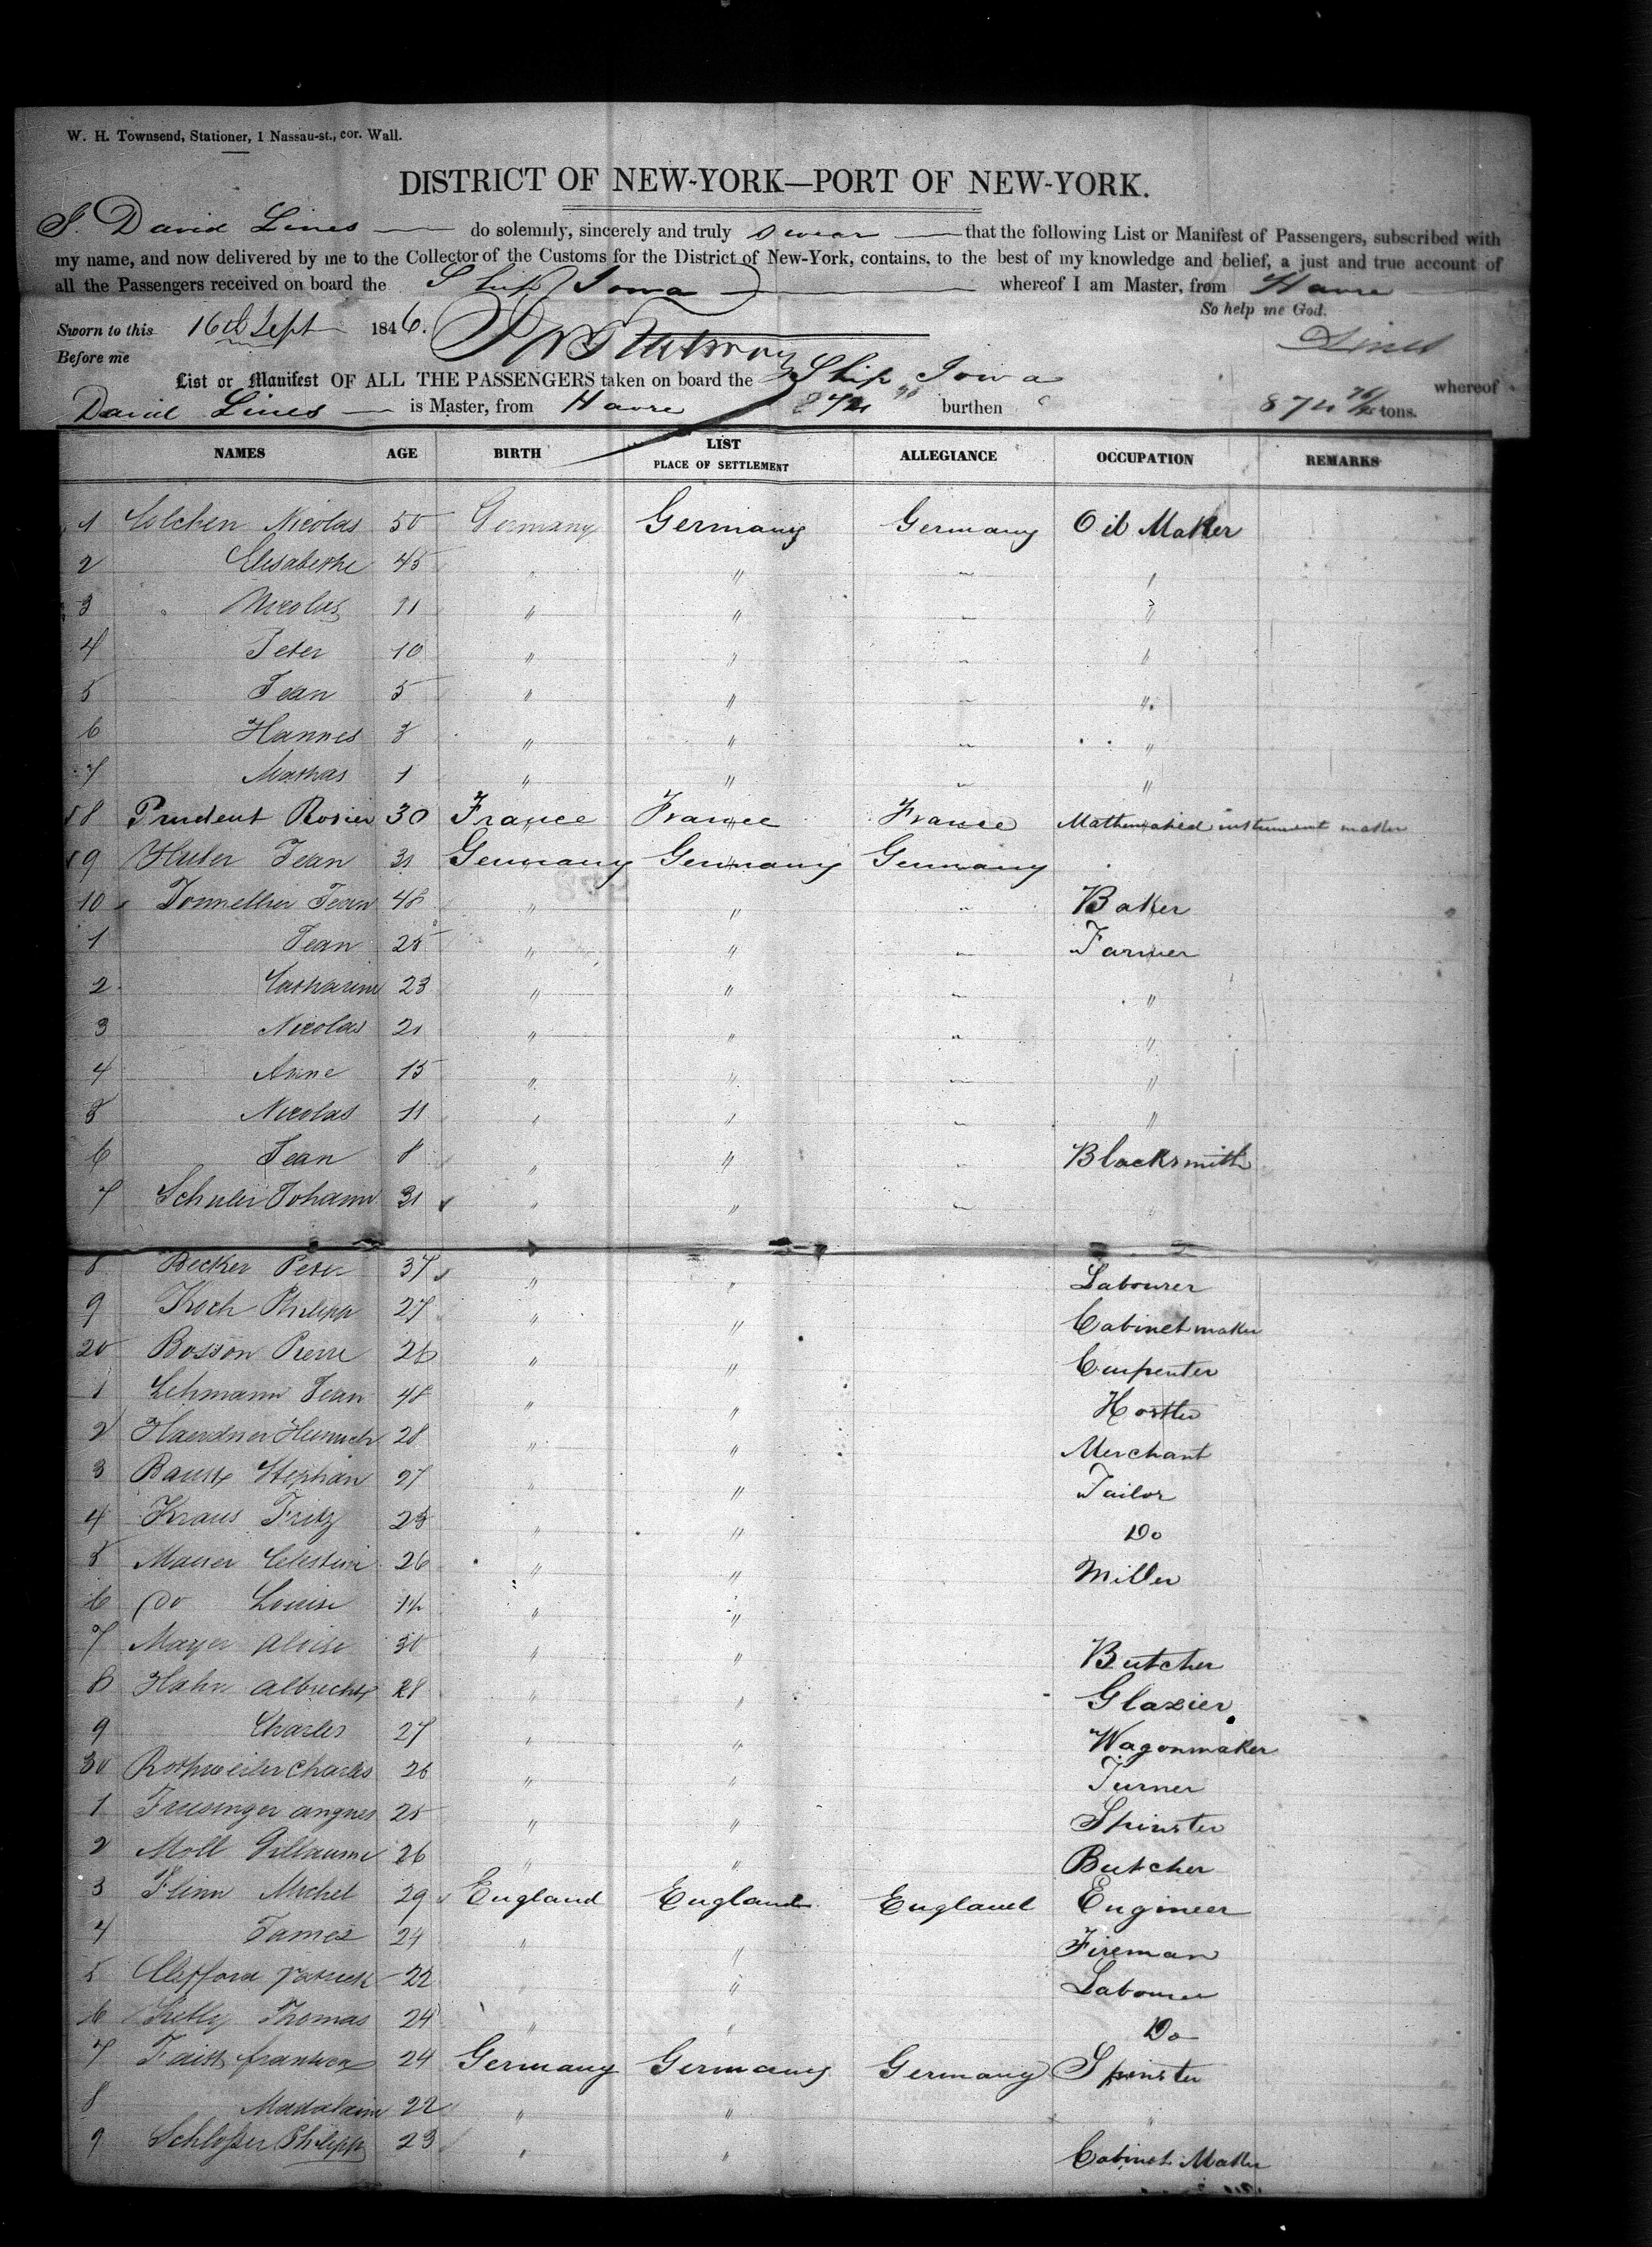 W. H. Townsend, Stationer, 1 Nassau-st., cor. Wall.
DISTRICT OF NEW-YORK—PORT OF NEW-YORK.
I. David Lines do solemnly, sincerely and truly swear that the following List or Manifest of Passengers, subscribed with
my name, and now delivered by me to the Collector of the Customs for the District of New-York, contains, to the best of my knowledge and belief, a just and true account of
all the Passengers received on board the Ship Iowa whereof I am Master, from Havre
So help me God.
Sworn to this 16th Sept 1846.
Lines
Before me
List or Manifest OF ALL THE PASSENGERS taken on board the Ship Iowa whereof
David Lines is Master, from Havre burthen 874 76/95 tons.
NAMES AGE BIRTH LIST PLACE OF SETTLEMENT ALLEGIANCE OCCUPATION REMARKS
1 Colchen Nicolas 50 Germany Germany Germany Oil Maker
2 Elisabethe 45 " " " "
3 Nicolas 11 " " " "
4 Peter 10 " " " "
5 Jean 5 " " " "
6 Hannes 3 " " " "
7 Mathas 1 " " " "
8 Prudent Rosier 30 France France France Mathematical instrument maker
9 Huber Jean 31 Germany Germany Germany
10 Tonnellier Jean 48 " " " Baker
1 Jean 25 " " " Farmer
2 Catharine 23 " " " "
3 Nicolas 21 " " " "
4 Anne 15 " " " "
5 Nicolas 11 " " " "
6 Jean 8 " " " Blacksmith
7 Schuler Johann 31 " " "
8 Becker Peter 37 " " Labourer
9 Koch Philipp 27 " " Cabinet maker
20 Bosson Pierre 26 " " Carpenter
1 Lehmann Jean 48 " " Hostler
2 Haendner Heinrich 28 " " Merchant
3 Baust Stephan 27 " " Tailor
4 Kraus Fritz 25 " " Do
5 Mauer Celestin 26 " " Miller
6 Do Louise 14 " "
7 Mayer Aloise 30 " " Butcher
8 Hahn Albrecht 28 " " Glazier
9 Charles 27 " " Wagonmaker
30 Rothweiler Charles 26 " " Turner
1 Freisinger Angnes 25 " " Spinster
2 Moll Gillaume 26 " " Butcher
3 Flinn Michel 29 England England England Engineer
4 James 24 " " Fireman
5 Clifford Patrick 22 " " Labourer
6 Kelly Thomas 24 " " Do
7 Faist 24 Germany Germany Germany Spinster
8 Madalaine 22 " " "
9 Schloßer Philipp 23 " " Cabinet Maker